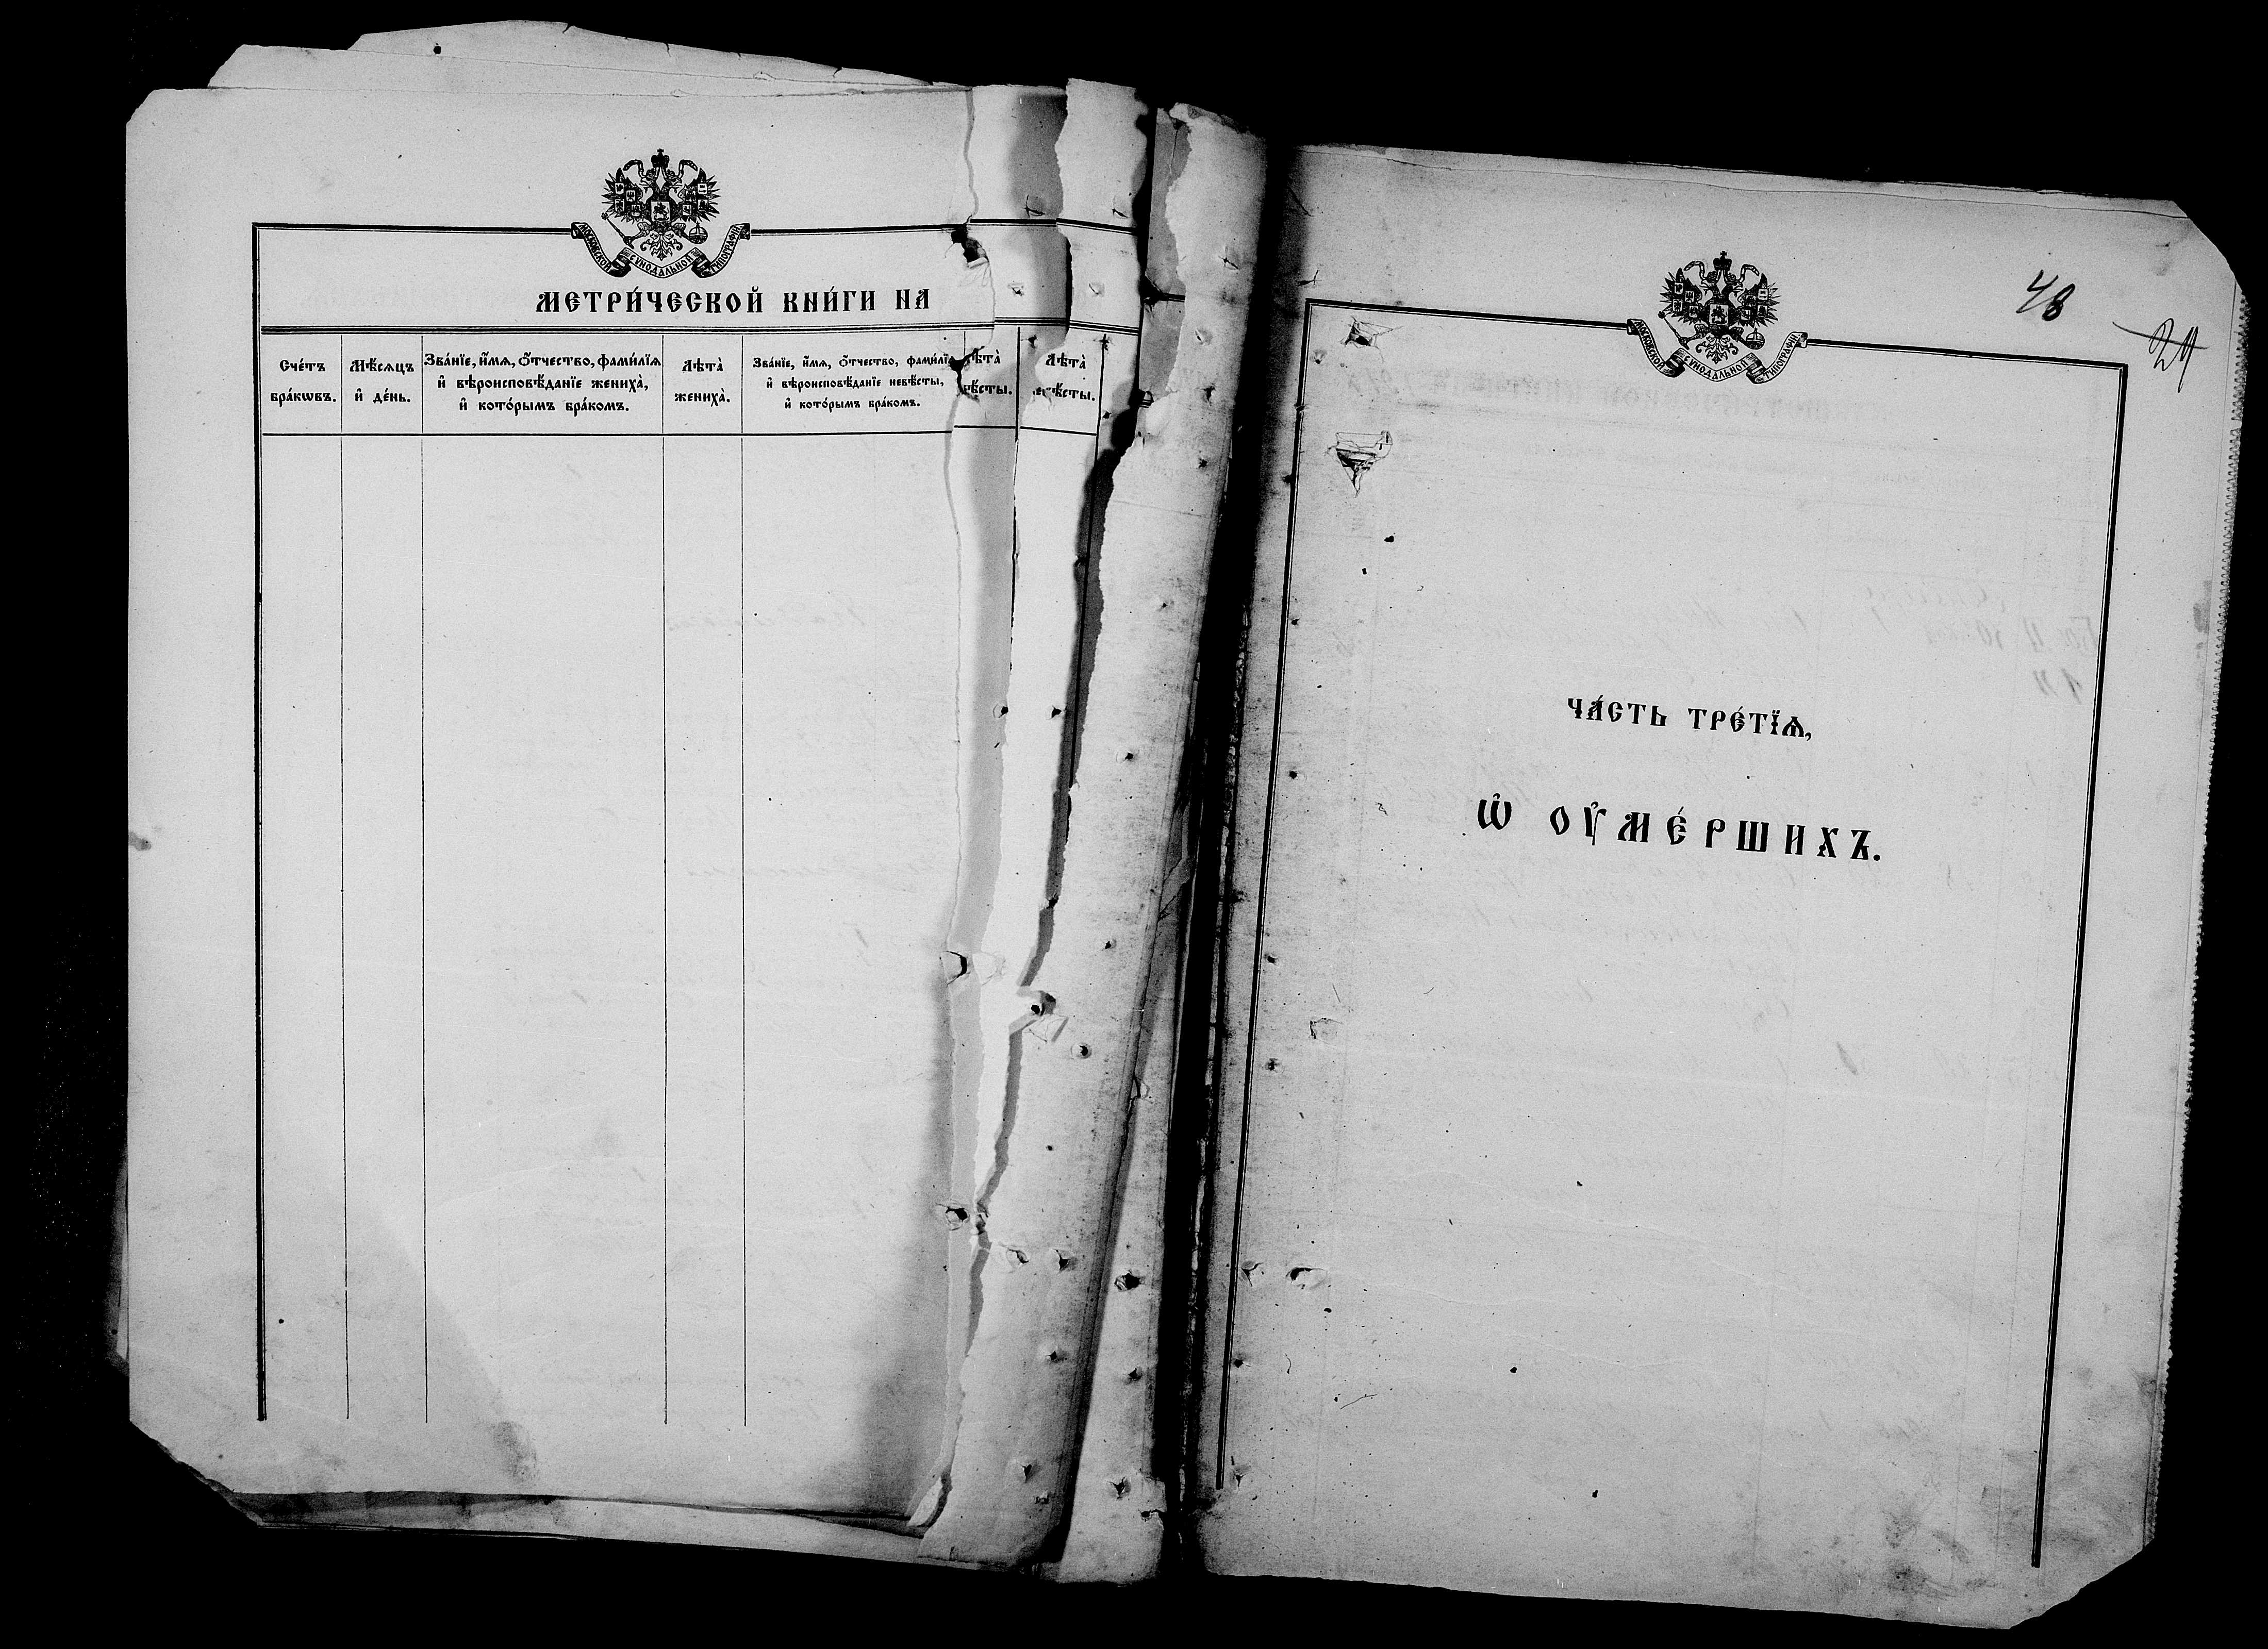 МОСКОВСКОЙ СѴНОДАЛЬНОЙ ТИПОГРАФІИ
МЕТРИ́ЧЕСКОЙ КНИ́ГИ НА
Сче́тъ
бра́кѡвъ.
Мѣ́сѧцъ
и҆ де́нь.
Зва́нїе, и҆́мѧ, ѻ҆́тчество, фами́лїѧ
и҆ вѣроисповѣ́данїе жениха̀,
и҆ кото́рымъ бра́комъ.
Лѣ́та̀
жениха̀.
Зва́нїе, и҆́мѧ, ѻ҆́тчество, фами́лїѧ
и҆ вѣроисповѣ́данїе невѣ́сты,
и҆ кото́рымъ бра́комъ.
лѣ́та̀
вѣ́сты.
Лѣ́та̀
невѣ́сты.
МОСКОВСКОЙ СѴНОДАЛЬНОЙ ТИПОГРАФІИ
48
29
ЧА́СТЬ ТРЕ́ТЇѦ,
Ѡ҆ ОУ҆МЕ́РШИХЪ.